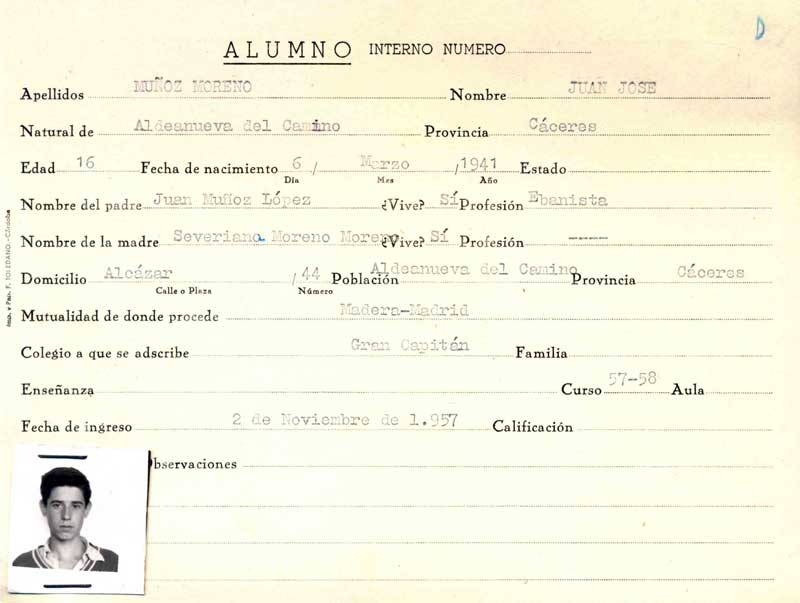 D
ALUMNO INTERNO NUMERO
Apellidos MUÑOZ MORENO Nombre JUAN JOSE
Natural de Aldeanueva del Camino Provincia Cáceres
Edad 16 Fecha de nacimiento 6 / Marzo /1941 Estado
Día Mes Año
Nombre del padre Juan Muñoz López ¿Vive? Sí Profesión Ebanista
Nombre de la madre Severiana Moreno Moreno ¿Vive? Sí Profesión ----
Domicilio Alcázar / 44 Población Aldeanueva del Camino Provincia Cáceres
Calle o Plaza Número
Mutualidad de donde procede Madera-Madrid
Colegio a que se adscribe Gran Capitán Familia
Enseñanza Curso 57-58 Aula
Fecha de ingreso 2 de Noviembre de 1.957 Calificación
Observaciones
Imp. y Pap. F. TOLEDANO.-Córdoba